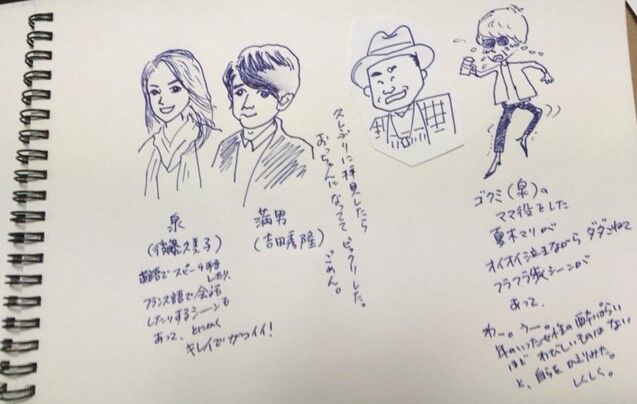 泉
(後藤久美子)
英語でスピーチを
したり、
フランス語で会話
したりするシーンも
あって、とにかく
キレイでカッコイイ!
満男
(吉田秀隆)
久しぶりに拝見したら
おっちゃんになっててビックリした。
ごめん。
ゴクミ(泉)の
ママ役をした
夏木マリが
オイオイ泣きながらダダこねて
フラフラ歩くシーンが
あって、
わー。うー。
年のいった女性の酔っぱらい
ほどわびしいものはない
と、自らをかえりみた。
しくしく。